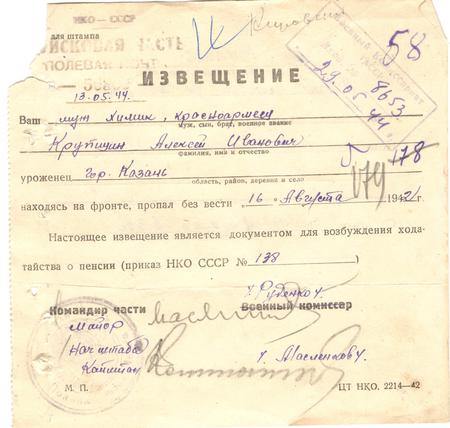 НКО — СССР
для штампа
ВОЙСКОВАЯ ЧАСТЬ
ПОЛЕВАЯ ПОЧТА
13.05.44.
58
29.05.44
8653
ИЗВЕЩЕНИЕ
Ваш муж Химик, красноармеец
муж, сын, брат, военное звание
Алексей Иванович
фамилия, имя и отчество
178
179
уроженец гор. Казань
область, район, деревня и село
находясь на фронте, пропал без вести 16 Августа 1942 г.
Настоящее извещение является документом для возбуждения хода-
тайства о пенсии (приказ НКО СССР № 138)
Руденко
Командир части
Военный комиссар
Майор
Нач штаба
Капитан
М. П.
ЦТ НКО. 2214—42